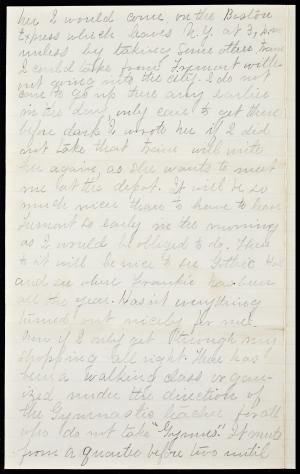 her I would come on the Boston
Express which leaves N.Y. at 3, P.M.
unless by taking some other train
I could take from Tremont with-
out going into the city. I do not
care to go up there any earlier
in the day, only care to get there
before dark. I wrote her if I did
not take that train will write
her again, as she wants to meet
me at the depot. It will be so
much nicer than to have to leave
Tremont so early in the morning
as I would be obliged to do. Then
to it will be nice to see Gothic
and see where Frankie has been
all the year. Has n't everything
turned out nicely for me.
Now if I only get through my
shopping all right. There has
been a walking class organ-
ized under the direction of
the Gymnastic teacher for all
who do not take "Gymns". It meets
from a quarter before two until